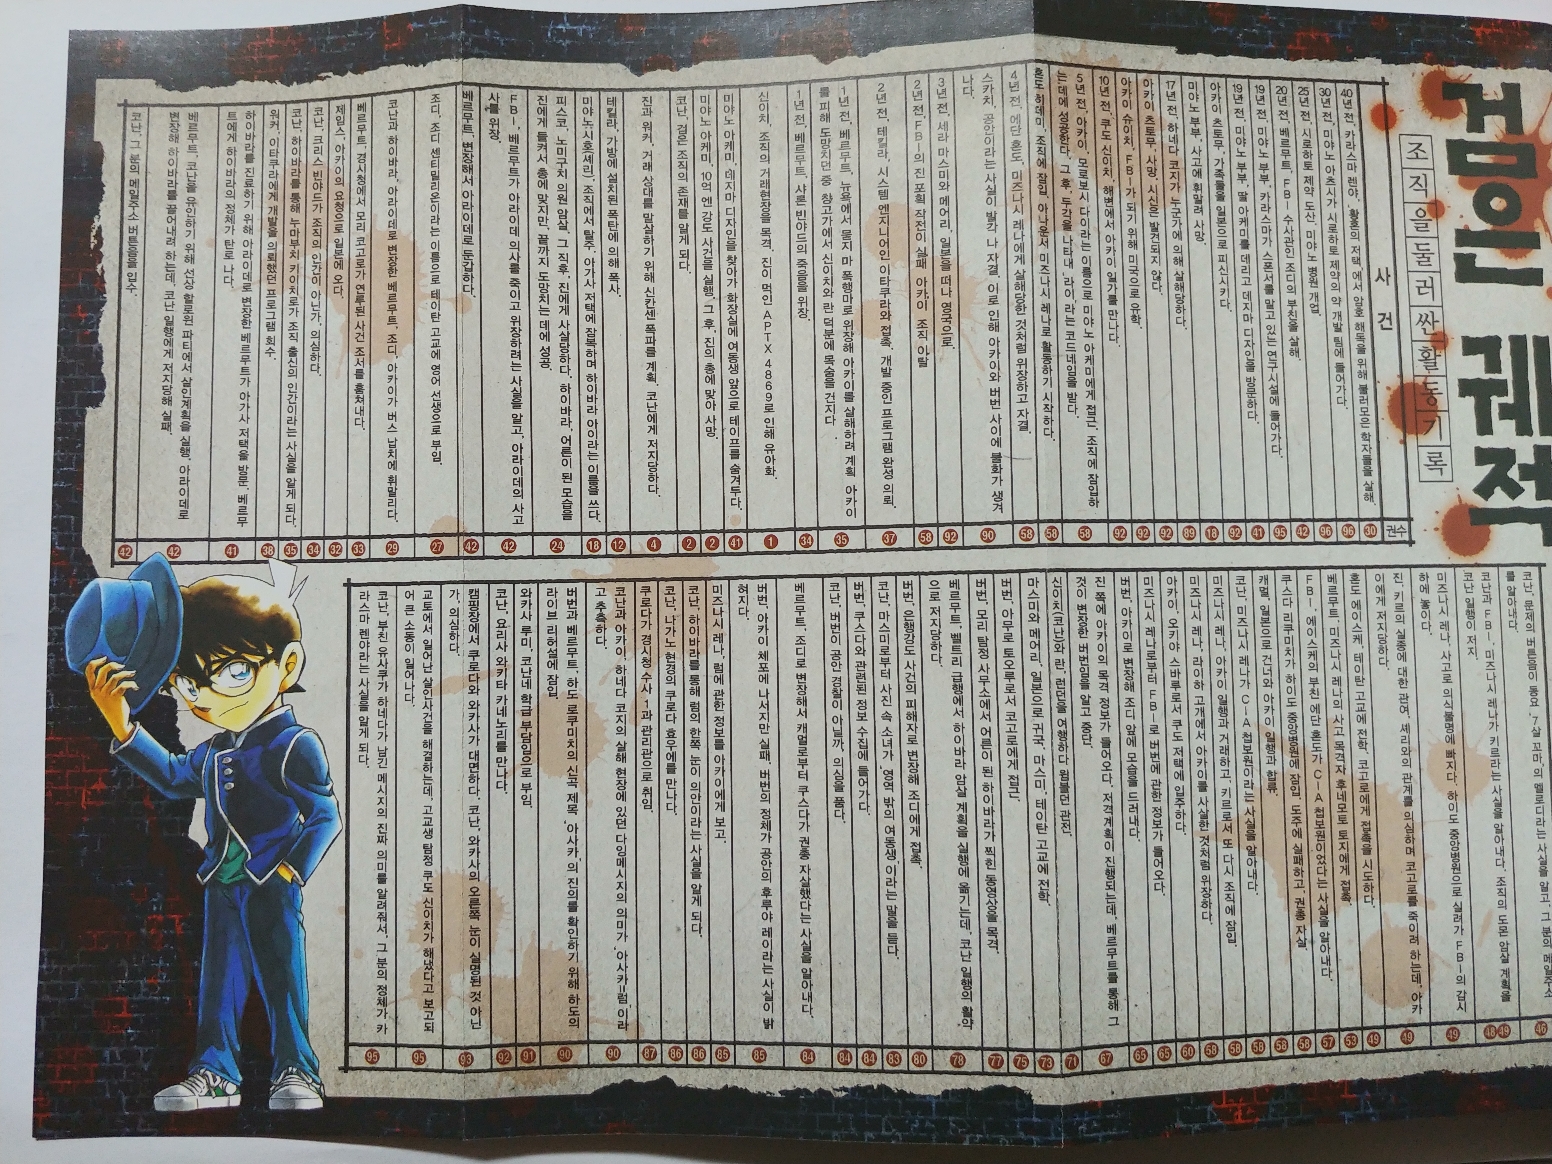 검은 궤적
조직을 둘러싼 활동기록
사건
권수
40년 전, 카라스마 렌야, '황혼의 저택'에서 암호 해독을 위해 불러모은 학자들을 살해. 39
30년 전, 미야노 아츠시가 시로하토 제약의 약 개발 팀에 들어가다. 96
25년 전, 시로하토 제약 도산, 미야노 병원 개업. 96
20년 전, 베르무트, FBI 수사관인 조디의 부친을 살해. 42
19년 전, 미야노 부부, 카라스마가 스폰서를 맡고 있는 연구시설에 들어가다. 95
19년 전, 미야노 부부, 딸 아케미를 데리고 데지마 디자인을 방문하다. 41
미야노 부부, 사고에 휘말려 사망. 18
17년 전, 하네다 코지가 누군가에 의해 살해당하다. 89
아카이 츠토무, 가족들을 일본으로 피신시키다. 92
아카이 츠토무, 사망, 시신은 발견되지 않다. 92
아카이 슈이치, FBI가 되기 위해 미국으로 유학. 92
10년 전, 쿠도 신이치, 해변에서 아카이 일가를 만나다. 92
5년 전, 아카이, 모로보시 다이라는 이름으로 미야노 아케미에게 접근, 조직에 잠입하
는데에 성공한다. 그 후, 두각을 나타내 '라이'라는 코드네임을 받다. 58
혼도 히데미, 조직에 잠입, 아나운서 미즈나시 레나로 활동하기 시작하다. 58
4년 전, 에단 혼도, 미즈나시 레나에게 살해당한 것처럼 위장하고 자결. 58
스카치, 공안이라는 사실이 발각 나 자결, 이로 인해 아카이와 버번 사이에 불화가 생겨
나다. 90
3년 전, 세라 마스미와 메어리, 일본을 떠나 영국으로. 92
2년 전, FBI의 진 포획 작전이 실패. 아카이, 조직 이탈 58
2년 전, 테킬라, 시스템 엔지니어인 이타쿠라와 접촉, 개발 중인 프로그램 완성 의뢰. 37
1년 전, 베르무트, 뉴욕에서 묻지 마 폭행마로 위장해 아카이를 살해하려 계획, 아카이
를 피해 도망치던 중 창고가에서 신이치와 란 덕분에 목숨을 건지다. 35
1년 전, 베르무트, 샤론 빈야드의 죽음을 위장. 34
신이치, 조직의 거래현장을 목격, 진이 먹인 APTX4869로 인해 유아화. 1
미야노 아케미, 데지마 디자인을 찾아가 화장실에 여동생 앞으로 테이프를 숨겨두다. 41
미야노 아케미, 10억 엔 강도 사건을 실행, 그 후, 진의 총에 맞아 사망. 2
코난, 검은 조직의 존재를 알게 되다. 2
진과 워커, 거래 상대를 말살하기 위해 신칸센 폭파를 계획, 코난에게 저지당하다. 4
테킬라, 가방에 설치된 폭탄에 의해 폭사. 12
미야노 시호(셰리), 조직에서 탈주, 아가사 저택에 잠복하며 하이바라 아이라는 이름을 쓰다. 18
피스코, 노미구치 의원 암살, 그 직후, 진에게 사살당하다. 하이바라, 어른이 된 모습을
진에게 들켜서 총에 맞지만, 끝까지 도망치는 데에 성공. 24
FBI, 베르무트가 아라이데 의사를 죽이고 위장하려는 사실을 알고, 아라이데의 사고
사를 위장. 42
베르무트, 변장해서 아라이데로 둔갑하다. 42
조디, 조디 센티밀리온이라는 이름으로 테이탄 고교에 영어 선생으로 부임. 27
코난과 하이바라, 아라이데로 변장한 베르무트, 조디, 아카이가 버스 납치에 휘말리다. 29
베르무트, 경시청에서 모리 코고로가 연루된 사건 조서를 훔쳐내다. 33
제임스, 아카이의 요청으로 일본에 오다. 32
코난, 크리스 빈야드가 조직의 인간이 아닌가, 의심하다. 34
코난, 하이바라를 통해 누마부치 키이치로가 조직 출신의 인간이라는 사실을 알게 되다. 35
워커, 이타쿠라에게 개발을 의뢰했던 프로그램 회수. 38
하이바라를 진료하기 위해 아라이데로 변장한 베르무트가 아가사 저택을 방문, 베르무
트에게 하이바라의 정체가 탄로 나다. 41
베르무트, 코난을 유인하기 위해 선상 할로윈 파티에서 살인계획을 실행, 아라이데로
변장해 하이바라를 끌어내려 하는데, 코난 일행에게 저지당해 실패. 42
코난, 그 분의 메일주소 버튼음을 입수. 42
코난, 문제의 버튼음이 동요 '7살 꼬마'의 멜로디라는 사실을 알고, 그 분의 메일주소
를 알아내다. 46
코난과 FBI, 미즈나시 레나가 키르라는 사실을 알아내다. 조직의 도몬 암살 계획을
코난 일행이 저지. 48 49
미즈나시 레나, 사고로 의식불명에 빠지다. 하이도 중앙병원으로 실려가 FBI의 감시
하에 놓이다. 49
진, 키르의 실종에 대한 관여, 셰리와의 관계를 의심하며 코고로를 죽이려 하는데, 아카
이에게 저지당하다. 49
혼도 에이스케, 테이탄 고교에 전학, 코고로에게 접촉을 시도하다. 49
베르무트, 미즈나시 레나의 사고 목격자 후네모토 토지에게 접촉. 53
FBI, 에이스케의 부친 에단 혼도가 CIA 첩보원이었다는 사실을 알아내다. 57
쿠스다 리쿠미치가 하이도 중앙병원에 잠입, 도주에 실패하고, 권총 자살. 58
캐멀, 일본으로 건너와 아카이 일행과 합류. 58
코난, 미즈나시 레나가 CIA 첩보원이라는 사실을 알아내다. 58
미즈나시 레나, 아카이 일행과 거래하고, 키르로서 또 다시 조직에 잠입. 58
미즈나시 레나, 라이하 고개에서 아카이를 사살한 것처럼 위장하다. 58
아카이, 오키야 스바루로서 쿠도 저택에 입주하다. 60
미즈나시 레나로부터 FBI로 버번에 관한 정보가 들어오다. 65
버번, 아카이로 변장해 조디 앞에 모습을 드러내다. 65
진 쪽에 아카이의 목격 정보가 들어오다. 저격계획이 진행되는데, 베르무트를 통해 그
것이 변장한 버번임을 알고 중단. 67
신이치(코난)와 란, 런던을 여행하다 윔블던 관전. 71
마스미와 메어리, 일본으로 귀국, 마스미, 테이탄 고교에 전학. 73
버번, 아무로 토오루로서 코고로에게 접근. 75
버번, 모리 탐정 사무소에서 어른이 된 하이바라가 찍힌 동영상을 목격. 77
베르무트, 벨트리 급행에서 하이바라 암살 계획을 실행에 옮기는데, 코난 일행의 활약
으로 저지당하다. 78
버번, 은행강도 사건의 피해자로 변장해 조디에게 접촉. 80
코난, 마스미로부터 사진 속 소녀가 '영역 밖의 여동생'이라는 말을 듣다. 83
버번, 쿠스다와 관련된 정보 수집에 들어가다. 84
코난, 버번이 공안 경찰이 아닐까, 의심을 품다. 84
베르무트, 조디로 변장해서 캐멀로부터 쿠스다가 권총 자살했다는 사실을 알아내다. 84
버번, 아카이 체포에 나서지만 실패. 버번의 정체가 공안의 후루야 레이라는 사실이 밝
혀지다. 85
미즈나시 레나, 럼에 관한 정보를 아카이에게 보고. 85
코난, 하이바라를 통해 럼의 한쪽 눈이 의안이라는 사실을 알게 되다. 86
코난, 나가노 현경의 쿠로다 효우에를 만나다. 86
쿠로다가 경시청 수사 1과 관리관으로 취임. 87
코난과 아카이, 하네다 코지의 살해 현장에 있던 다잉메시지의 의미가 '아사카=럼'이라
고 추측하다. 90
버번과 베르무트, 하도 로쿠미치의 신곡 제목, '아사카'의 진의를 확인하기 위해 하도의
라이브 리허설에 잠입. 90
와카사 루미, 코난네 학급 부담임으로 부임. 91
코난, 요리사 와키타 카네노리를 만나다. 92
캠핑장에서 쿠로다와 와카사가 대면하다. 코난, 와카사의 오른쪽 눈이 실명된 것 아닌
가, 의심하다. 93
교토에서 일어난 살인사건을 해결하는데, 고교생 탐정 쿠도 신이치가 해냈다고 보고되
어 큰 소동이 일어나다. 95
코난, 부친 유사쿠가 하네다가 남긴 메시지의 진짜 의미를 알려줘서, 그 분의 정체가 카
라스마 렌야라는 사실을 알게 되다. 95